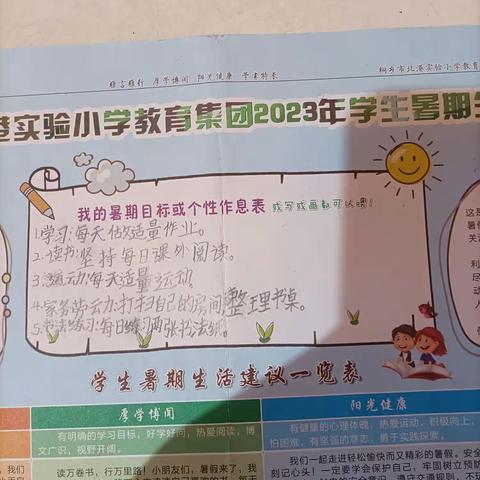 雅言雅行 厚学博闻 阳光健康 学有特长
桐乡市北港实验小学教育
港实验小学教育集团2023年学生暑期生
我的暑期目标或个性作息表 或写或画都可以哦!
1.学习:每天做适量作业。
2.读书:坚持每日课外阅读。
3.运动:每天适量运动。
4.家务劳动:打扫自己的房间,整理书桌。
5.书法练习:每日练习两张书法纸。
学生暑期生活建议一览表
厚学博闻
阳光健康
有明确的学习目标,好学好问,热爱阅读,博
广识,视野开阔。
有健康的心理体魄,热爱运动,积极向上,
怕困难,有坚强的意志,勇于实践探索。
读万卷书,行万里路!小朋友们,暑假来了,我
我们一起走进轻松愉快而又精彩的暑假。安
刻记心头!一定要学会保护自己,牢固树立预防